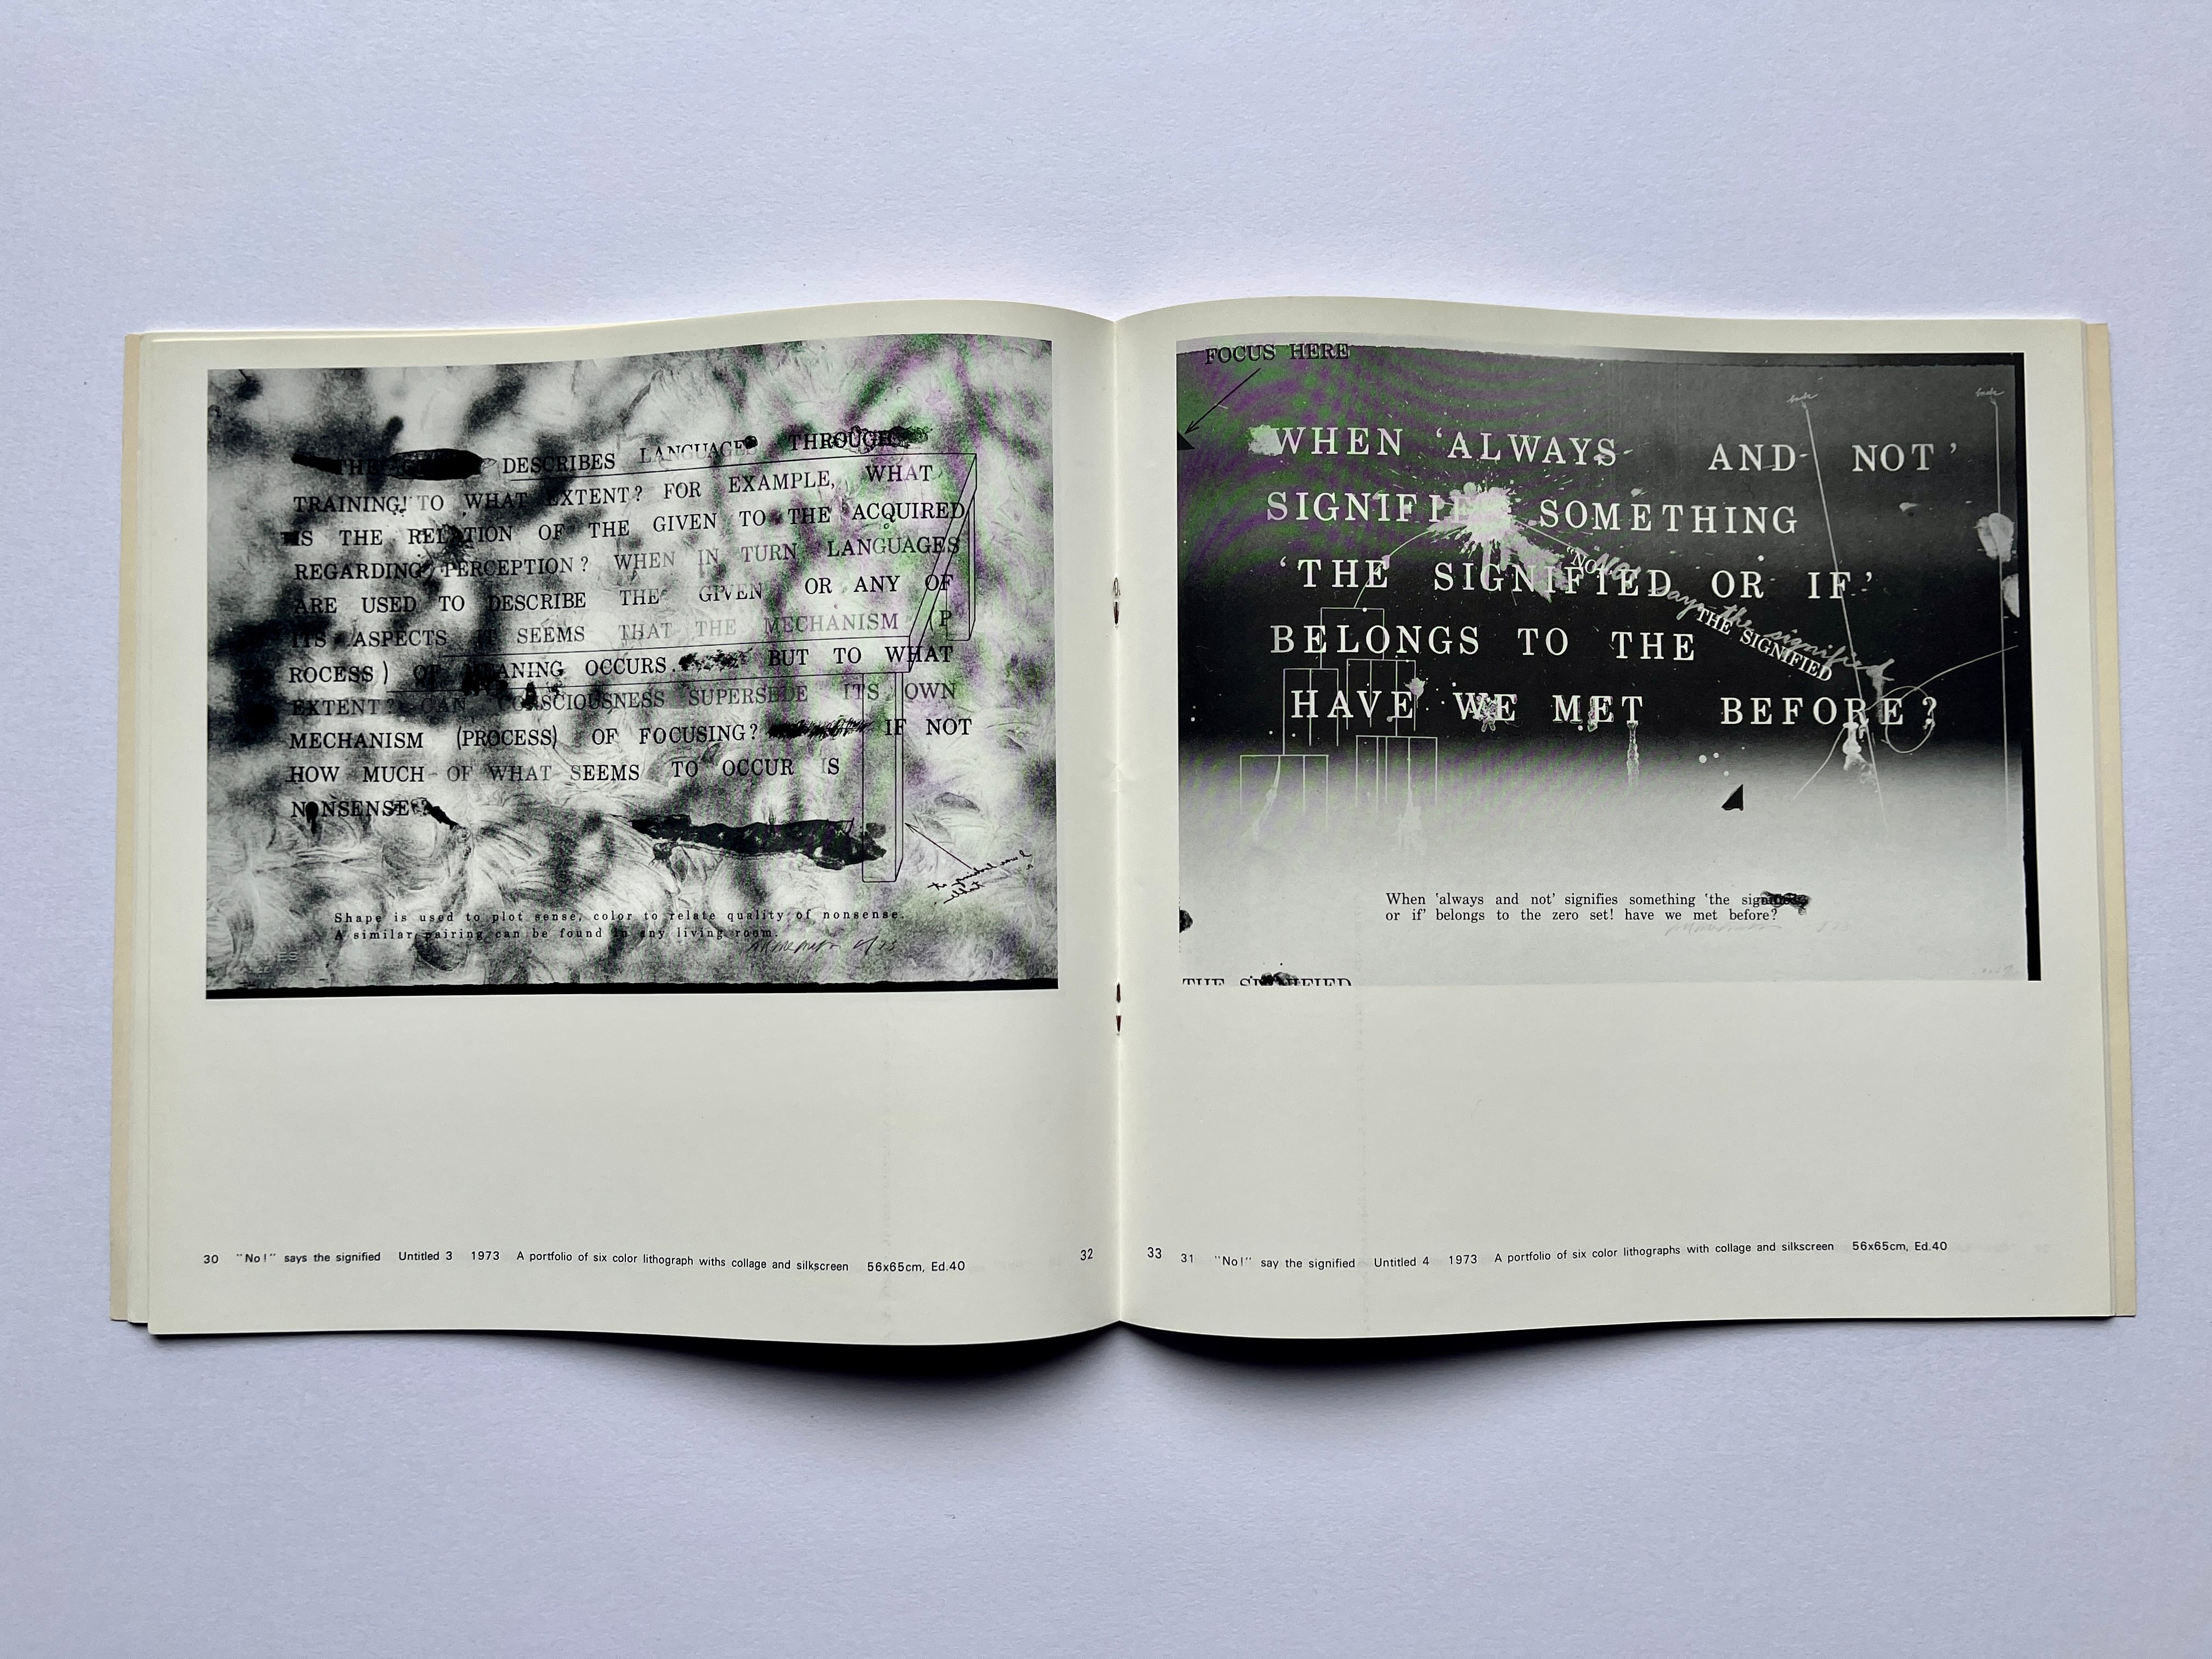 THE DESCRIBES LANGUAGE THROUGH
TRAINING! TO WHAT EXTENT? FOR EXAMPLE, WHAT
IS THE RELATION OF THE GIVEN TO THE ACQUIRED
REGARDING PERCEPTION? WHEN IN TURN LANGUAGES
ARE USED TO DESCRIBE THE GIVEN OR ANY OF
ITS ASPECTS IT SEEMS THAT THE MECHANISM (P
ROCESS) OF MEANING OCCURS. BUT TO WHAT
EXTENT? CAN CONSCIOUSNESS SUPERSEDE ITS OWN
MECHANISM (PROCESS) OF FOCUSING? IF NOT
HOW MUCH OF WHAT SEEMS TO OCCUR IS
NONSENSE?
Shape is used to plot sense, color to relate quality of nonsense.
A similar pairing can be found in any living room.
30 "No!" says the signified Untitled 3 1973 A portfolio of six color lithograph withs collage and silkscreen 56x65cm, Ed.40
32
FOCUS HERE
WHEN ‘ALWAYS AND NOT’
SIGNIFIES SOMETHING
‘THE SIGNIFIED OR IF’
BELONGS TO THE
HAVE WE MET BEFORE?
"NO"
says the signified
THE SIGNIFIED
When ‘always and not’ signifies something ‘the signified
or if’ belongs to the zero set! have we met before?
THE SIGNIFIED
33
31 "No!" say the signified Untitled 4 1973 A portfolio of six color lithographs with collage and silkscreen 56x65cm, Ed.40